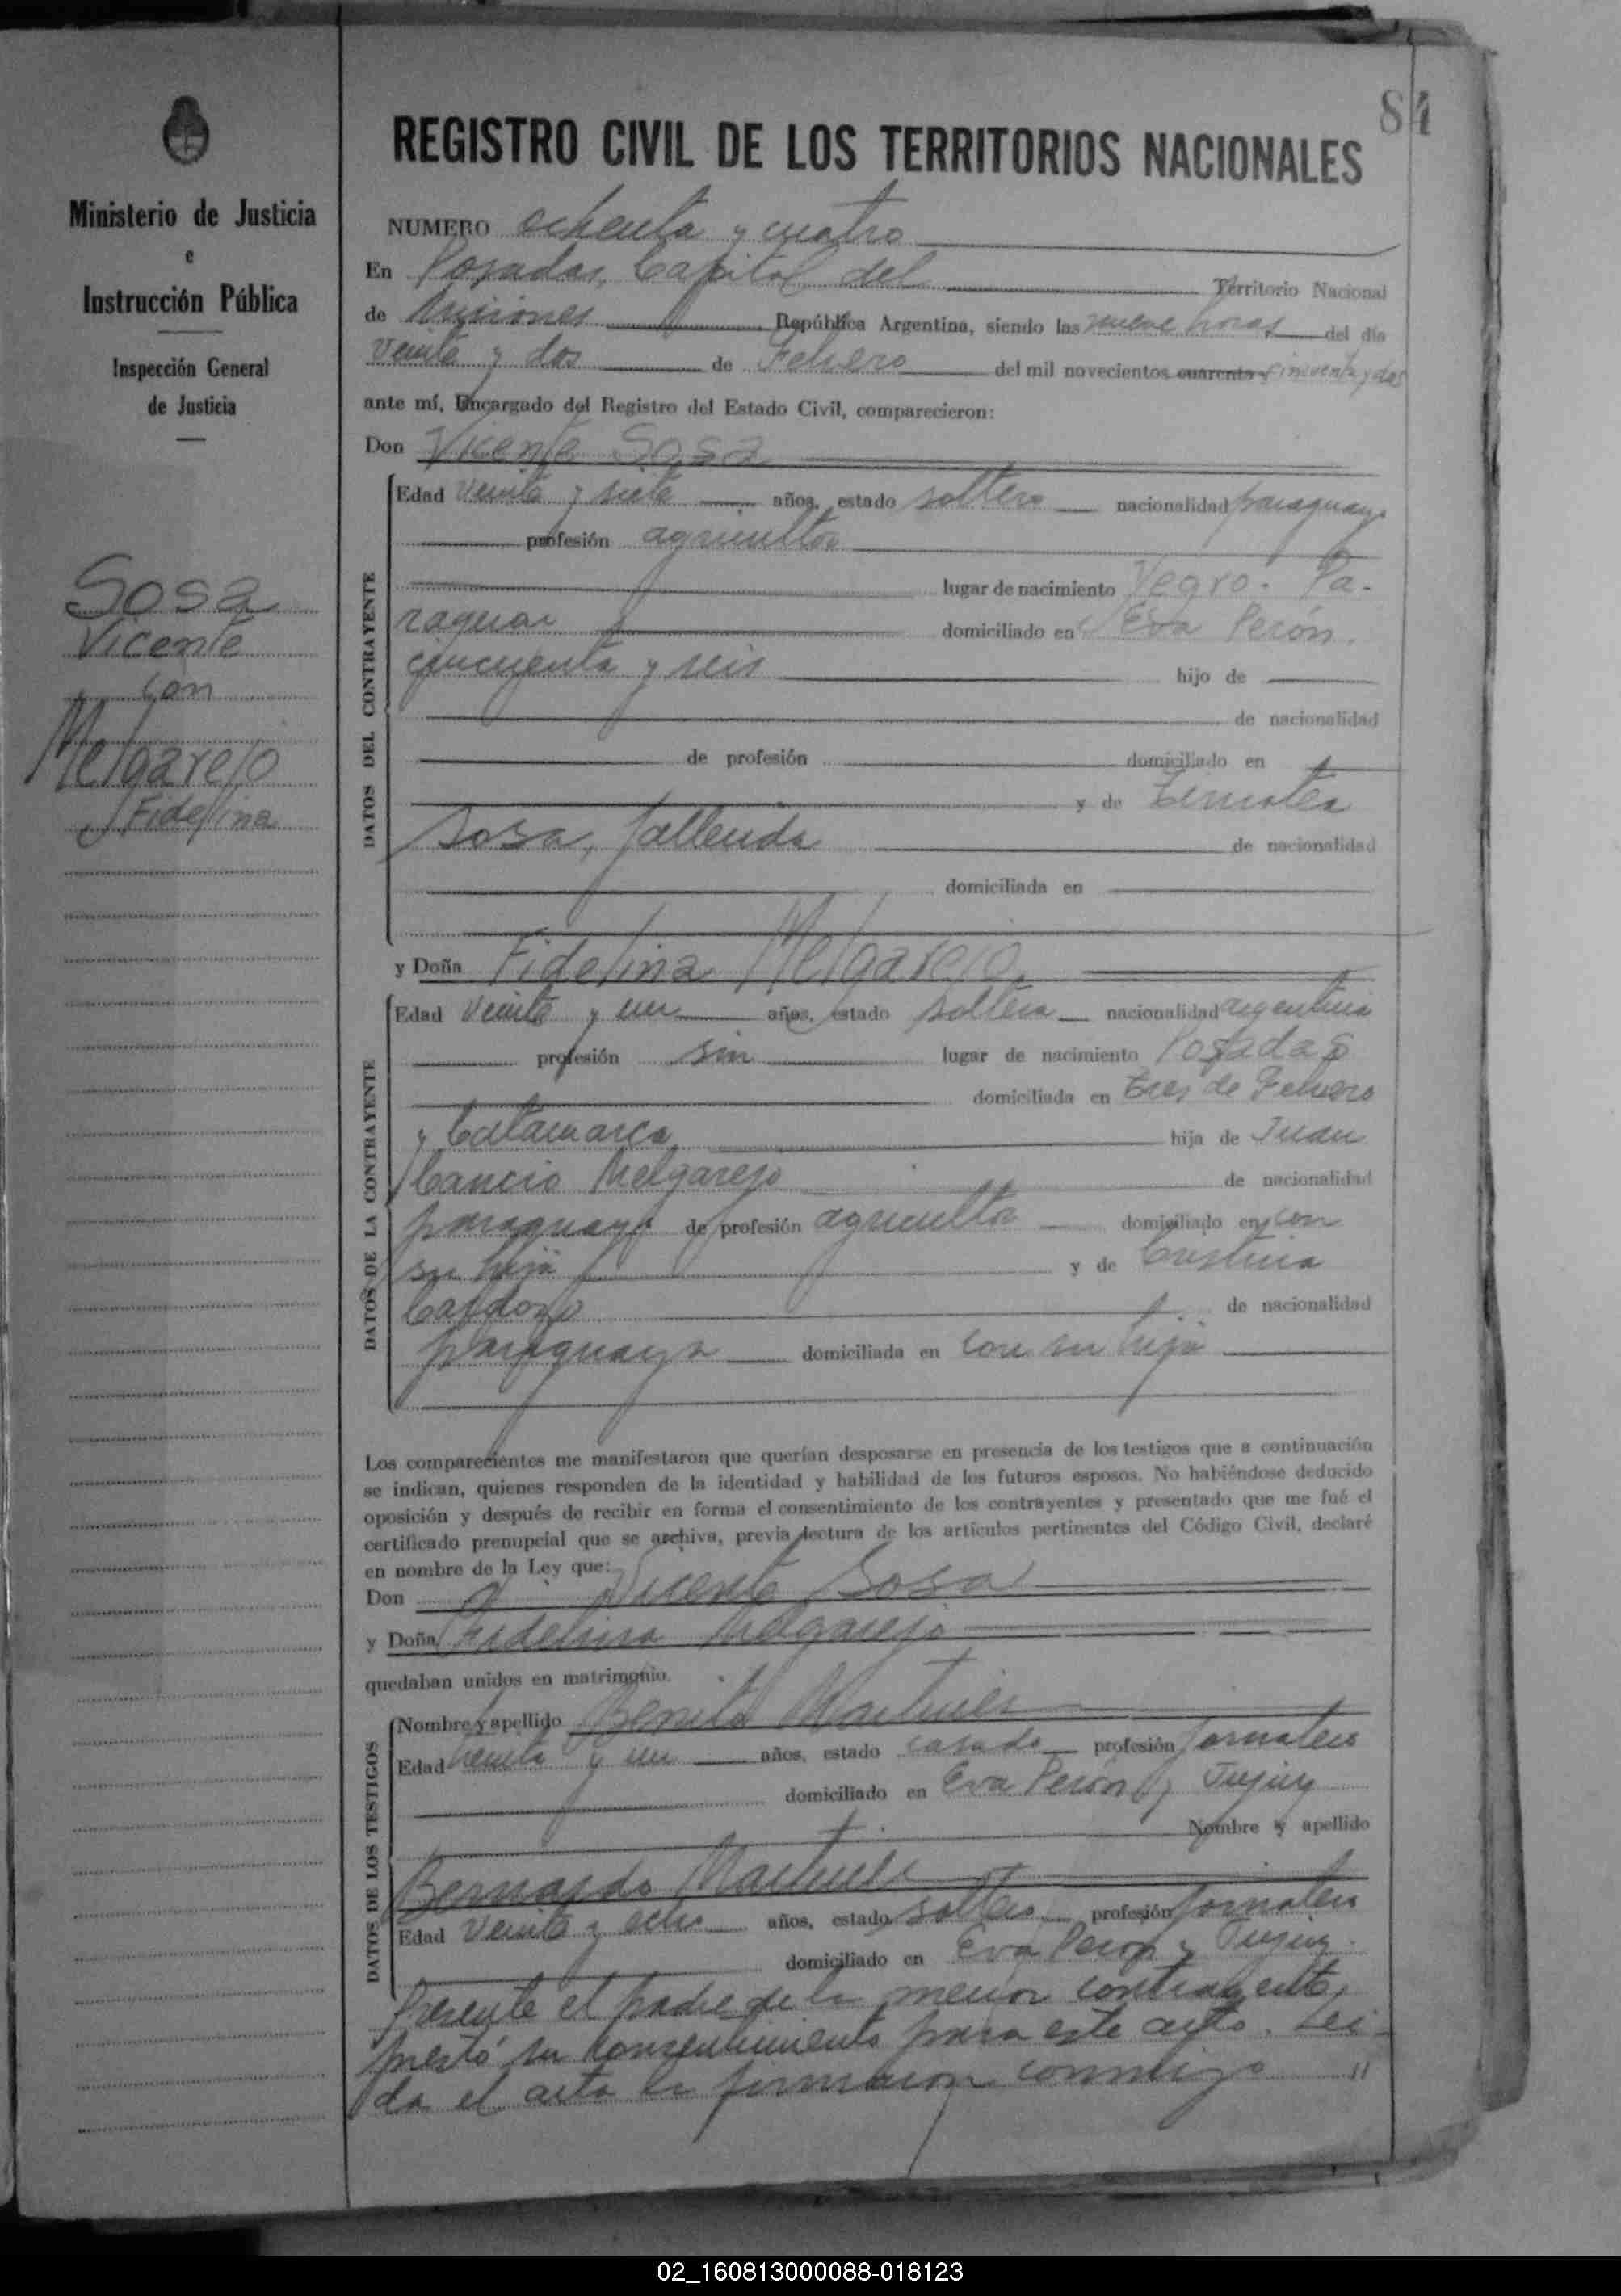 84
Ministerio de Justicia
e
Instrucción Pública
Inspección General
de Justicia
Sosa
Vicente
con
Melgarejo
Fidelina
REGISTRO CIVIL DE LOS TERRITORIOS NACIONALES
NUMERO ochenta y cuatro
En Posadas, Capital del Territorio Nacional
de Misiones República Argentina, siendo las nueve horas del día
veinte y dos de Febrero del mil novecientos cuarenta y cincuenta y dos
ante mí, Encargado del Registro del Estado Civil, comparecieron:
Don Vicente Sosa
DATOS DEL CONTRAYENTE
Edad veinte y siete años, estado soltero nacionalidad paraguayo
profesión agricultor
lugar de nacimiento Yegro. Pa-
raguai domiciliado en Eva Perón.
cincuenta y seis hijo de
de nacionalidad
de profesión domiciliado en
y de
Sosa, fallecida de nacionalidad
domiciliada en
y Doña Fidelina Melgarejo
DATOS DE LA CONTRAYENTE
Edad veinte y un años, estado soltera nacionalidad argentina
profesión sin lugar de nacimiento Posadas
domiciliada en tres de Febrero
y Catamarca hija de Juan
Cancio Melgarejo de nacionalidad
paraguayo de profesión agricultor domiciliado en con
su hija y de Cristina
Cardozo de nacionalidad
paraguaya domiciliada en con su hija
Los comparecientes me manifestaron que querían desposarse en presencia de los testigos que a continuación
se indican, quienes responden de la identidad y habilidad de los futuros esposos. No habiéndose deducido
oposición y después de recibir en forma el consentimiento de los contrayentes y presentado que me fué el
certificado prenupcial que se archiva, previa lectura de los artículos pertinentes del Código Civil, declaré
en nombre de la Ley que:
Don Vicente Sosa
y Doña Fidelina Melgarejo
quedaban unidos en matrimonio.
DATOS DE LOS TESTIGOS
Nombre y apellido Benito Martinez
Edad treinta y un años, estado casado profesión jornalero
domiciliado en Eva Perón y Jujuy
Nombre y apellido
Bernardo Martinez
Edad veinte y ocho años, estado soltero profesión jornalero
domiciliado en Eva Peron y Jujuy.
Presente el padre de la menor contrayente,
prestó su consentimiento para este acto. Lei-
da el acta la firmaron conmigo "
02_160813000088-018123